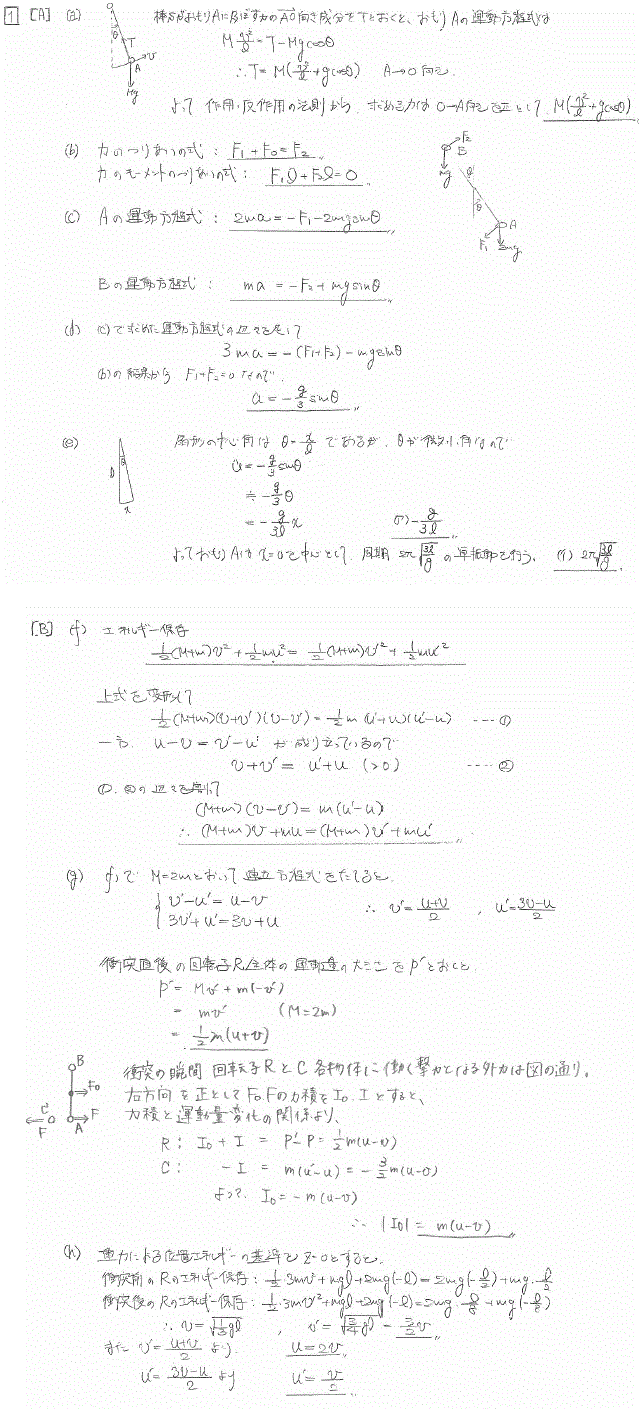 1 [A] (a) 棒がおもりAにBぼす力のAO向き成分をTとおくと、おもりAの運動方程式は
M v²/l = T - Mg cosθ
∴ T = M(v²/l + g cosθ) A→O向き.
よって 作用・反作用の法則から 求める力は O→A向きを正として M(v²/l + g cosθ)
(b) 力のつりあいの式 : F₁ + F₀ = F₂
力のモーメントのつりあいの式 : F₁l + F₂l = 0
(c) Aの運動方程式 : 2ma = -F₁ - 2mg sinθ
Bの運動方程式 : ma = -F₂ + mg sinθ
(d) (c)で求めた運動方程式の辺々を足して
3ma = -(F₁+F₂) - mg sinθ
(b)の結果から F₁+F₂=0 なので.
a = -g/3 sinθ
(e) 扇形の中心角は θ = x/l であるが、θが微小角なので
a = -g/3 sinθ
≒ -g/3 θ
= -g/3l x (ア) -g/3l
よっておもりAは x=0を中心として、周期 2π√3l/g の単振動を行う、 (イ) 2π√3l/g
[B] (f) エネルギー保存
1/2(M+m)v² + 1/2mu² = 1/2(M+m)v'² + 1/2mu'²
上式を変形して
1/2(M+m)(v+v')(v-v') = 1/2m(u'+u)(u'-u) ---①
一方、 u-v = v'-u' が成り立っているので
v+v' = u'+u (>0) ----②
①、②の辺々を割って
(M+m)(v-v') = m(u'-u)
∴ (M+m)v + mu = (M+m)v' + mu'
(g) (f)で M=2mとおいて 連立方程式をたてると、
v'-u' = u-v
3v'+u' = 3v+u ∴ v' = u+v/2 , u' = 3v-u/2
衝突直後の回転子R全体の運動量の大きさをp'とおくと、
p' = Mv' + m(-v')
= mv' (M=2m)
= 1/2m(u+v)
衝突の瞬間 回転子RとC各物体に働く撃力となる外力は図の通り。
右方向を正としてF₀、Fの力積をI₀、Iとすると、
力積と運動量変化の関係より、
R: I₀ + I = p'-p = 1/2m(u-v)
C: -I = m(u'-u) = -3/2m(u-v)
よって. I₀ = -m(u-v)
∴ |I₀| = m(u-v)
(h) 重力による位置エネルギーの基準を z=0とすると、
衝突前のRのエネルギー保存: 1/2・3mv² + mgl + 2mg(-l) = 2mg(-l/2) + mg・l/2
衝突後のRのエネルギー保存: 1/2・3mv'² + mgl + 2mg(-l) = 2mg・l/8 + mg(-l/8)
∴ v = √1/3gl , v' = √3/4gl = 3/2v
また v' = u+v/2 より. u = 2v
u' = 3v-u/2 より u' = v/2